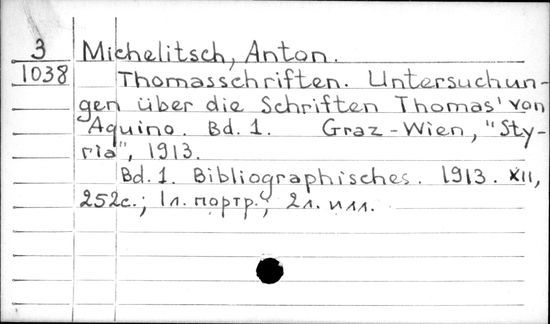 3 Michelitsch, Anton.
1038 Thomasschriften. Untersuchun-
gen über die Schriften Thomas' von
Aquino. Bd. 1. Graz-Wien, "Sty-
ria", 1913.
Bd. 1. Bibliographisches. 1913. XII,
252c.; 1л. портр.; 2л. илл.